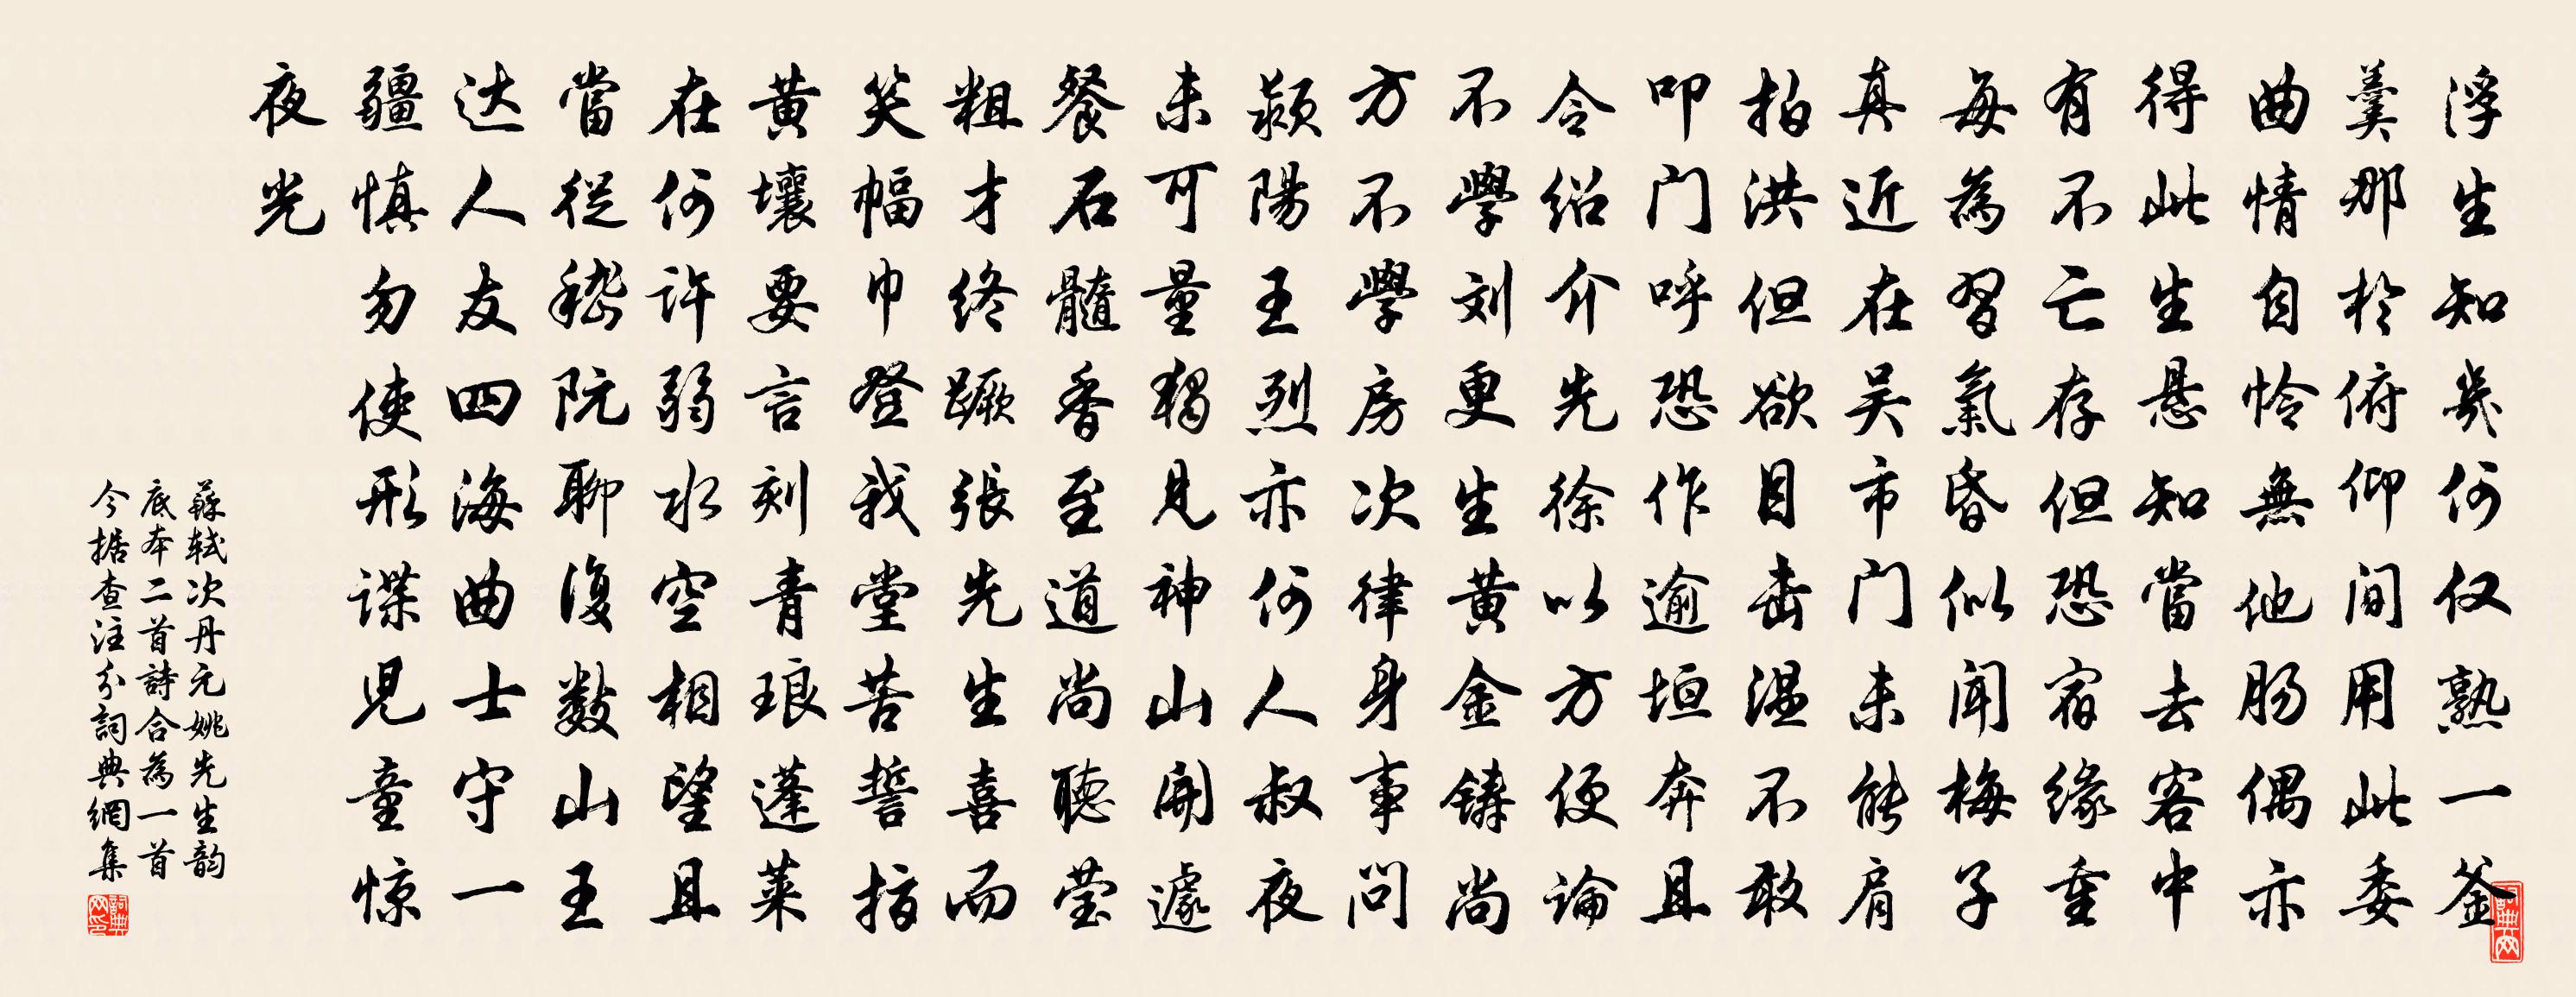 浮生知幾何仅熟一釜
羹那於俯仰间用此委
曲情自怜無他肠偶亦
得此生悬知當去客中
有不亡存但恐宿缘重
每為習氣昏似闻梅子
真近在吴市门未能肩
拍洪但欲目击温不敢
叩门呼恐作逾垣奔且
令绍介先徐以方便论
不學刘更生黄金铸尚
方不學房次律身事问
颍陽王烈亦何人叔夜
未可量独見神山開遽
餐石髓香至道尚聴莹
粗才终蹶張先生喜而
笑幅巾登我堂苦誓指
黄壤要言刻青琅蓬莱
在何许弱水空相望且
當從嵇阮聊復数山王
达人友四海曲士守一
疆慎勿使形谍児童惊
夜光
蘇轼次丹元姚先生韵
底本二首詩合為一首
今据查注分詞典網集
詞典网
詞典网印